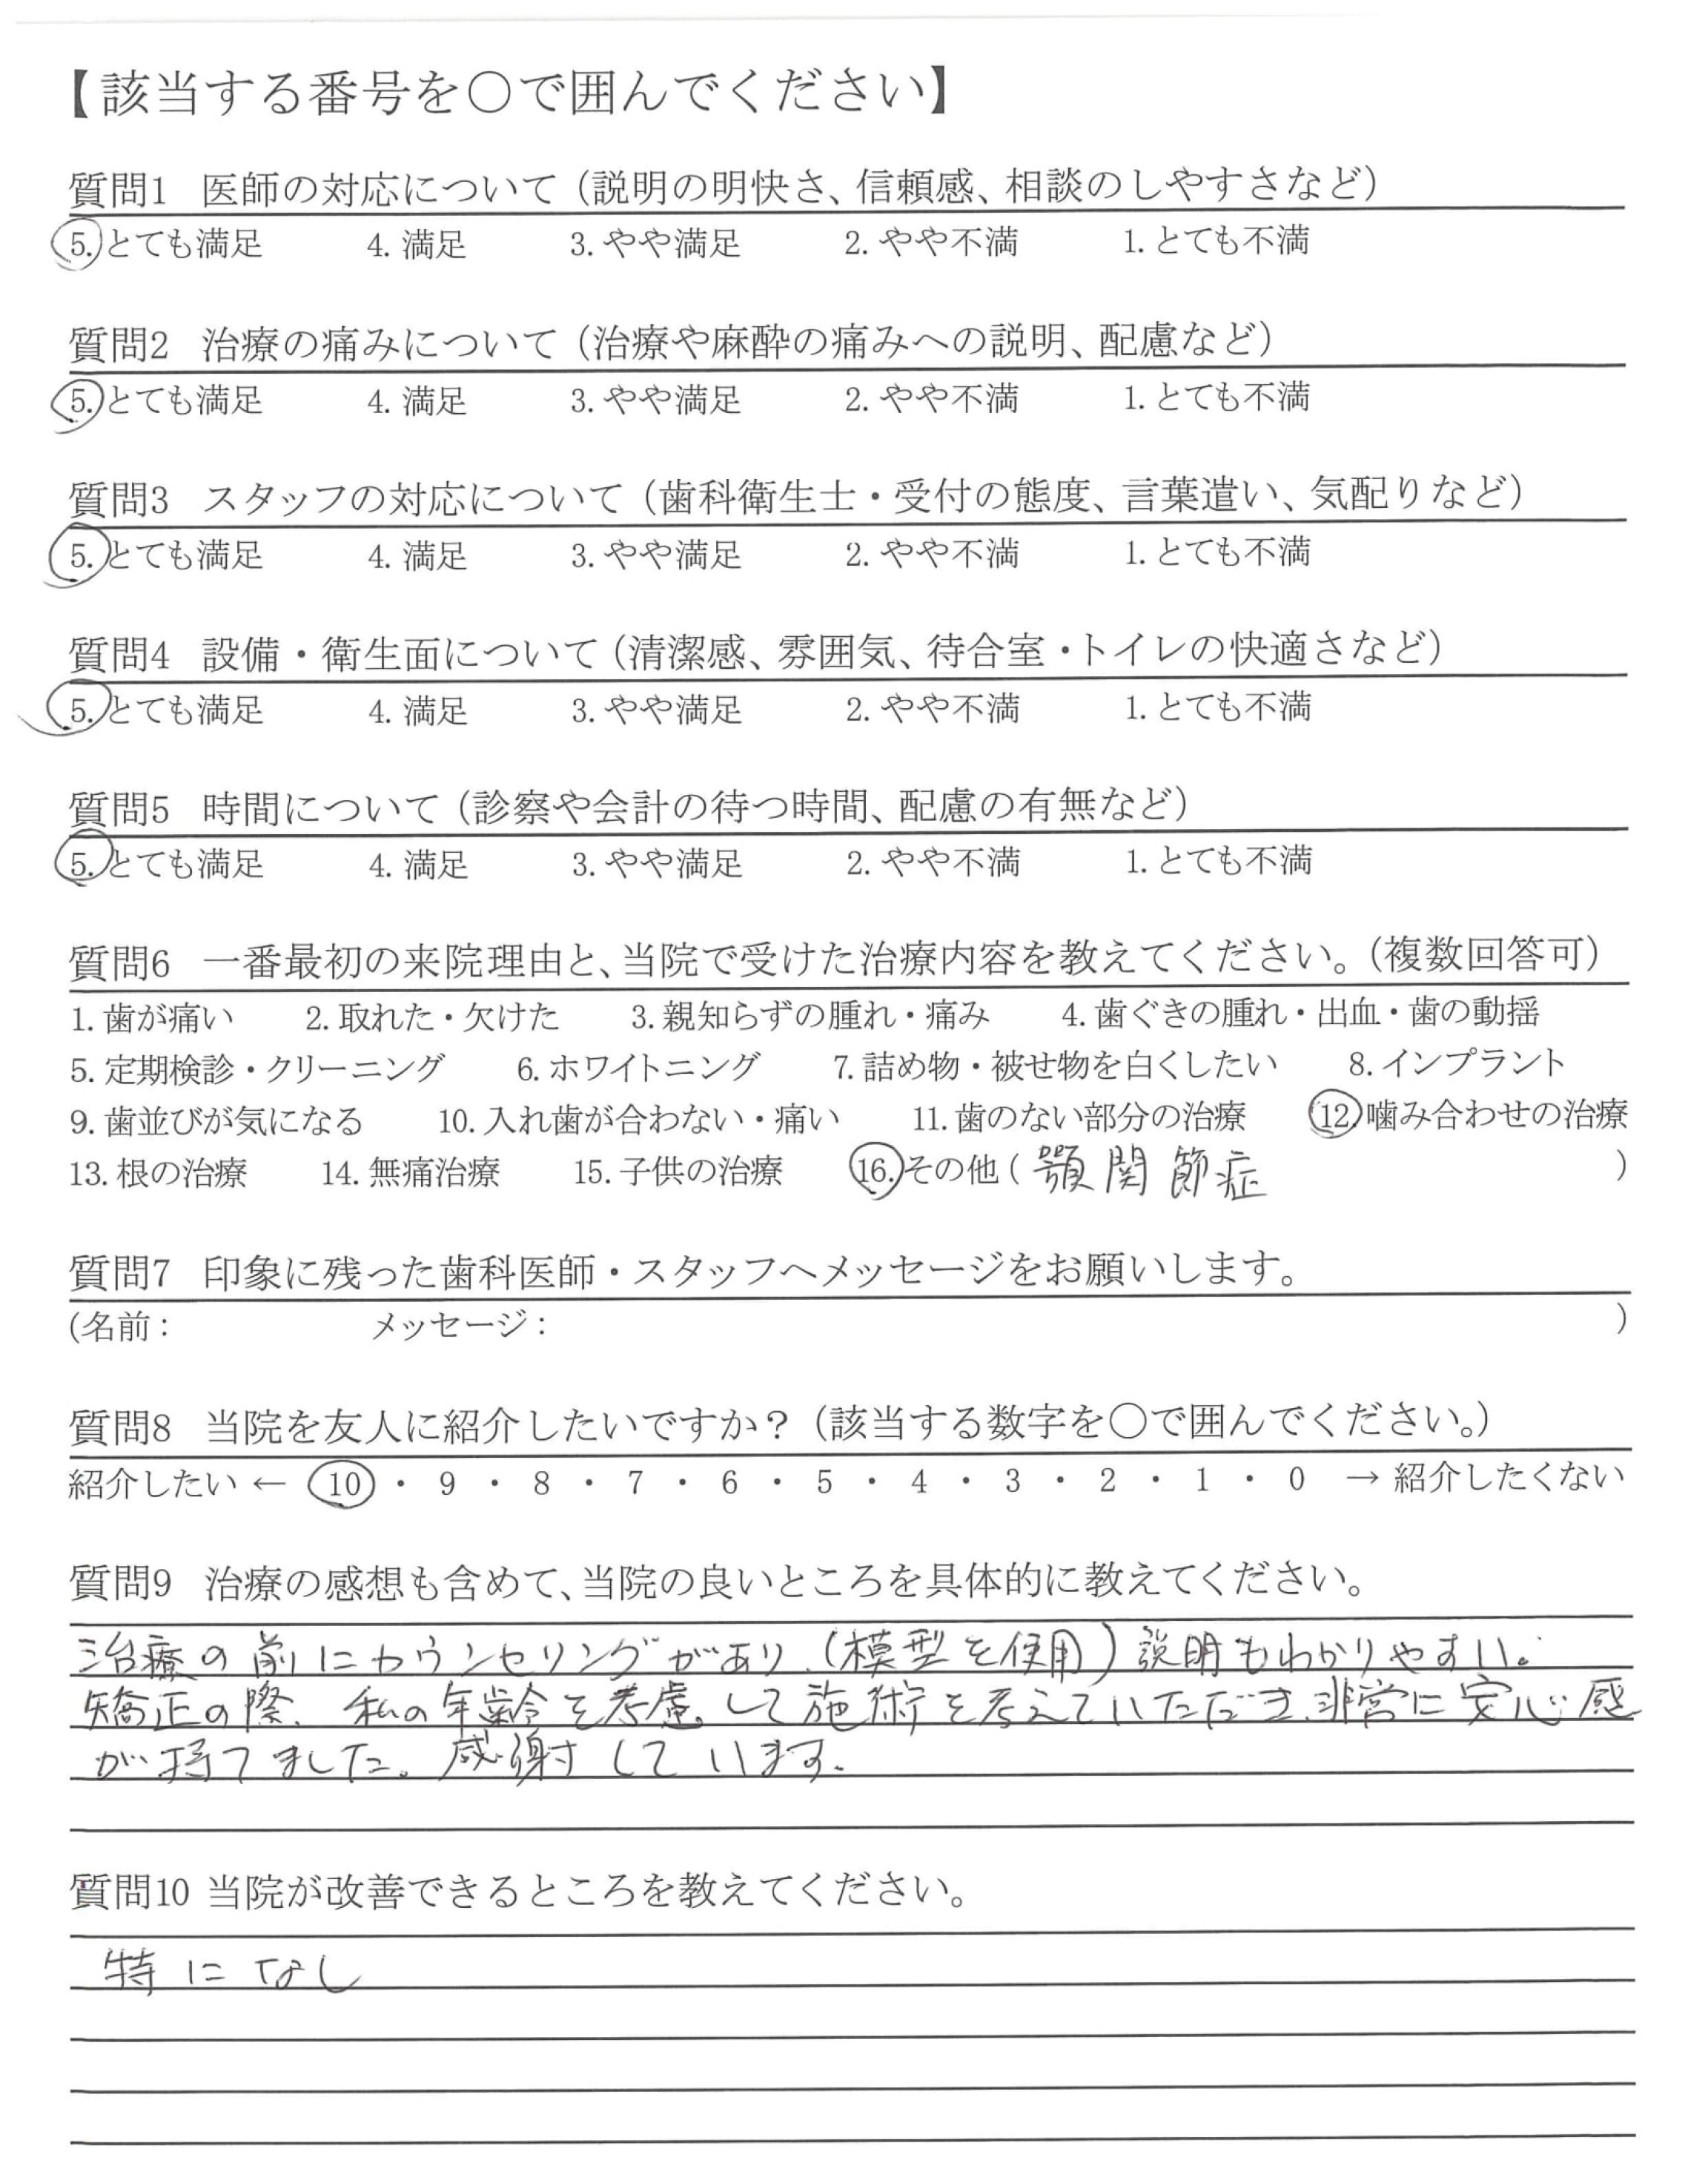 【該当する番号を○で囲んでください】
質問1 医師の対応について（説明の明快さ、信頼感、相談のしやすさなど）
5. とても満足 4. 満足 3. やや満足 2. やや不満 1. とても不満
質問2 治療の痛みについて（治療や麻酔の痛みへの説明、配慮など）
5. とても満足 4. 満足 3. やや満足 2. やや不満 1. とても不満
質問3 スタッフの対応について（歯科衛生士・受付の態度、言葉遣い、気配りなど）
5. とても満足 4. 満足 3. やや満足 2. やや不満 1. とても不満
質問4 設備・衛生面について（清潔感、雰囲気、待合室・トイレの快適さなど）
5. とても満足 4. 満足 3. やや満足 2. やや不満 1. とても不満
質問5 時間について（診察や会計の待つ時間、配慮の有無など）
5. とても満足 4. 満足 3. やや満足 2. やや不満 1. とても不満
質問6 一番最初の来院理由と、当院で受けた治療内容を教えてください。（複数回答可）
1. 歯が痛い 2. 取れた・欠けた 3. 親知らずの腫れ・痛み 4. 歯ぐきの腫れ・出血・歯の動揺
5. 定期検診・クリーニング 6. ホワイトニング 7. 詰め物・被せ物を白くしたい 8. インプラント
9. 歯並びが気になる 10. 入れ歯が合わない・痛い 11. 歯のない部分の治療 12. 噛み合わせの治療
13. 根の治療 14. 無痛治療 15. 子供の治療 16. その他（顎関節症）
質問7 印象に残った歯科医師・スタッフへメッセージをお願いします。
（名前： メッセージ： ）
質問8 当院を友人に紹介したいですか？（該当する数字を○で囲んでください。）
紹介したい ← 10 ・ 9 ・ 8 ・ 7 ・ 6 ・ 5 ・ 4 ・ 3 ・ 2 ・ 1 ・ 0 → 紹介したくない
質問9 治療の感想も含めて、当院の良いところを具体的に教えてください。
治療の前にカウンセリングがあり、（模型を使用）説明もわかりやすい。
矯正の際、私の年齢を考慮して施術を考えていただき、非常に安心感
が持てました。感謝しています。
質問10 当院が改善できるところを教えてください。
特になし